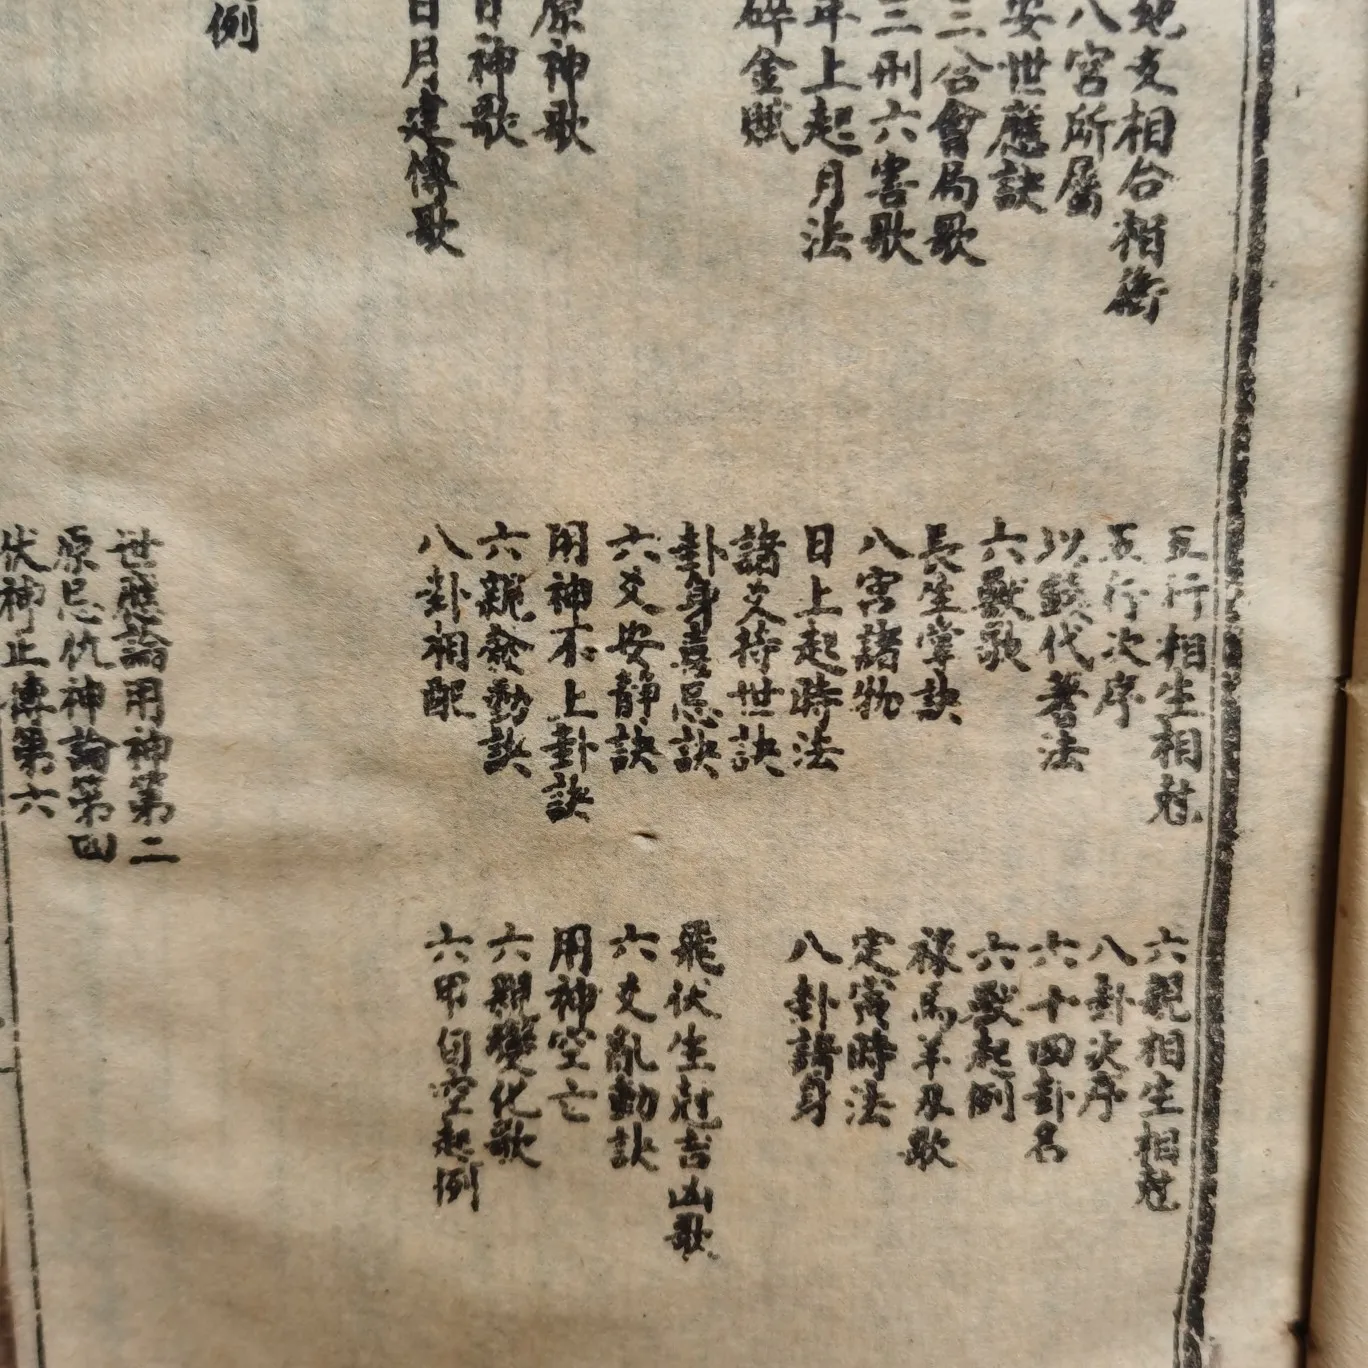 五行相生相尅
六親相生相尅
地支相合相衝
五行次序
八卦次序
八宮所屬
以錢代蓍法
六十四卦名
安世應訣
六獸歌
六獸起例
三合會局歌
長生掌訣
祿馬羊刃歌
三刑六害歌
八宮諸物
定寅時法
年上起月法
日上起時法
八卦諸身
碎金賦
諸爻持世訣
卦身喜忌訣
飛伏生尅吉凶歌
六爻安靜訣
六爻亂動訣
原神歌
用神不上卦訣
用神空亡
神歌
六親發動訣
六親變化歌
日月建傳歌
八卦相配
六甲旬空起例
例
世應論用神第二
原忌仇神論第四
伏神正傳第六